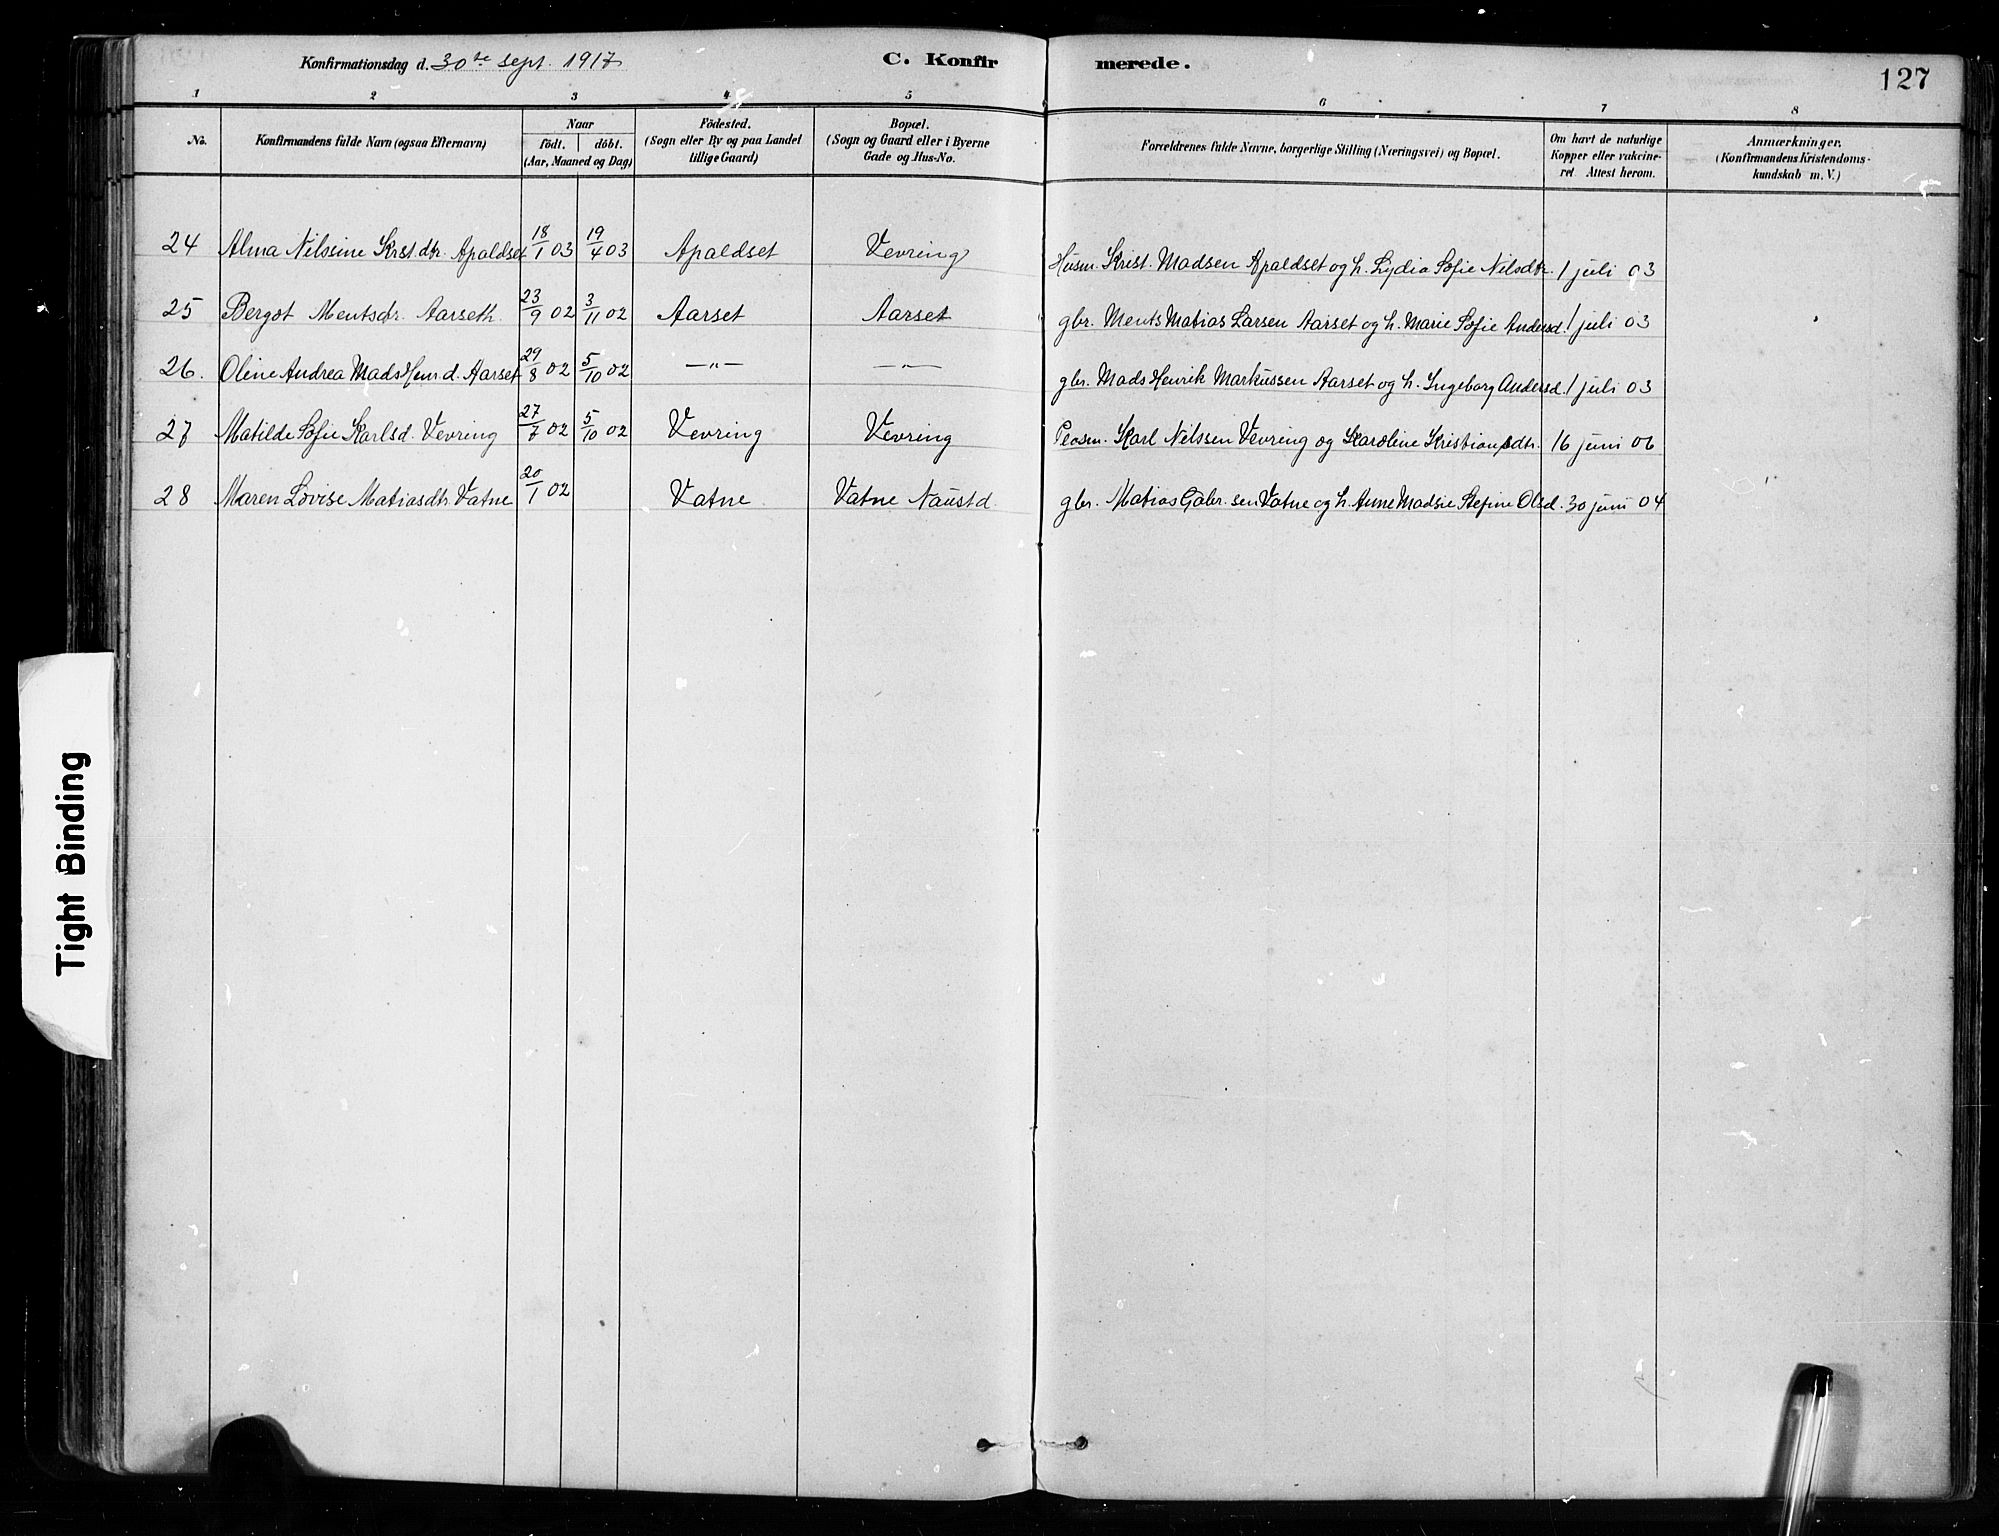 Konfirmationsdag d. 30te sept. 1917 C. Konfir merede. 127
1 2 3 4 5 6 7 8
No. Konfirmandens fulde Navn (ogsaa Efternavn) Naar födt. döbt. (Aar, Maaned og Dag) Födested. (Sogn eller By og paa Landet tillige Gaard) Bopæl. (Sogn og Gaard eller i Byerne Gade og Hus-No. Forældrenes fulde Navne, borgerlige Stilling (Næringsvei) og Bopæl. Om havt de naturlige Kopper eller vakcineret Attest herom. Anmærkninger. (Konfirmandens Kristendomskundskab m. V.)
24 Alma Nilssine Krst.dtr. Apaldset 18/1 03 19/4 03 Apaldset Vevring Husm. Krist. Madsen Apaldset og h. Lydia Sofie Nilsdtr. 1 juli 03
25 Bergot Mentsdr. Aarseth. 23/9 02 3/11 02 Aarset Aarset gbr. Ments Matias Larsen Aarset og h. Marie Sofie Andersd. 1 juli 03
26. Oline Andrea Mads Henr d. Aarset 29/8 02 5/10 02 —"— —"— gbr. Mads Henrik Markussen Aarset og h. Ingeborg Andersd. 1 juli 03
27 Matilde Sofie Karlsd. Vevring 27/7 02 5/10 02 Vevring Vevring Karl Nilssen Vevring og Karoline Kristiansdtr. 16 juni 06
28 Maren Lovise Matiasdtr. Vatne 20/1 02 Vatne Vatne Naustd. gbr. Matias Gabr. sen Vatne og h. Anne Madsie Stefine Olsd. 30 juni 04
Tight Binding